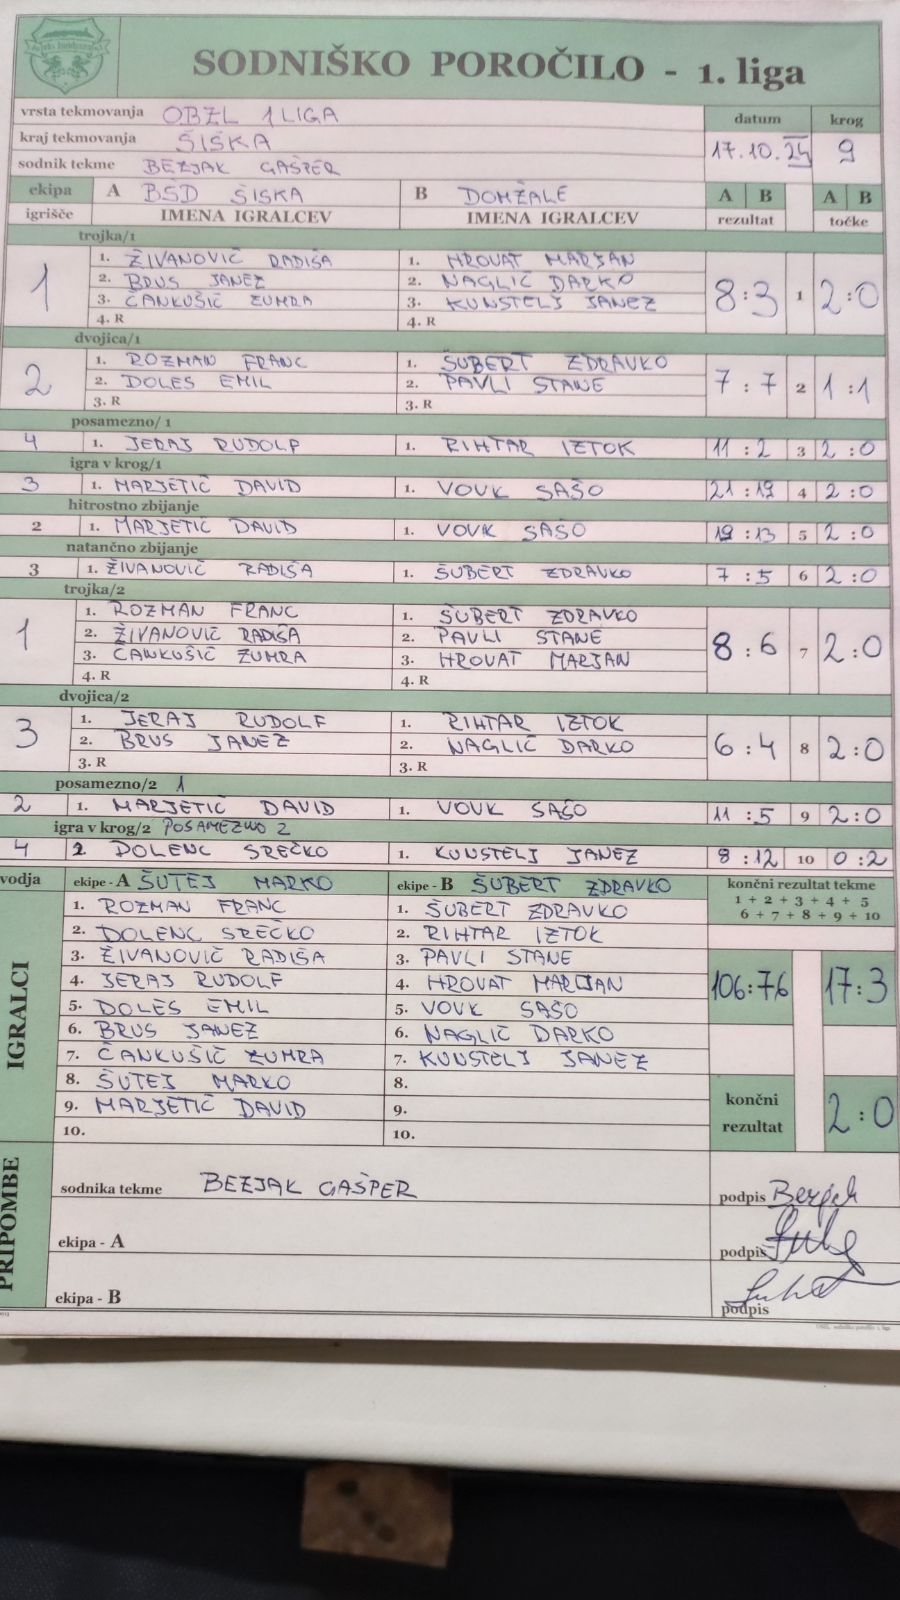 SODNIŠKO POROČILO - 1. liga
vrsta tekmovanja OBZL 1 LIGA datum krog
kraj tekmovanja ŠIŠKA 17.10.24 9
sodnik tekme BEZJAK GAŠPER
ekipa A BŠD ŠIŠKA B DOMŽALE A B A B
igrišče IMENA IGRALCEV IMENA IGRALCEV rezultat točke
trojka/1
1 1. ŽIVANOVIČ RADIŠA 1. HROVAT MARJAN 8:3 1 2:0
2. BRUS JANEZ 2. NAGLIČ DARKO
3. ČANKUŠIČ ZUMRA 3. KUNSTELJ JANEZ
4. R 4. R
dvojica/1
2 1. ROZMAN FRANC 1. ŠUBERT ZDRAVKO 7:7 2 1:1
2. DOLES EMIL 2. PAVLI STANE
3. R 3. R
posamezno/ 1
4 1. JERAJ RUDOLF 1. RIHTAR IZTOK 11:2 3 2:0
igra v krog/1
3 1. MARJETIČ DAVID 1. VOVK SAŠO 21:19 4 2:0
hitrostno zbijanje
2 1. MARJETIČ DAVID 1. VOVK SAŠO 19:13 5 2:0
natančno zbijanje
3 1. ŽIVANOVIČ RADIŠA 1. ŠUBERT ZDRAVKO 7:5 6 2:0
trojka/2
1 1. ROZMAN FRANC 1. ŠUBERT ZDRAVKO 8:6 7 2:0
2. ŽIVANOVIČ RADIŠA 2. PAVLI STANE
3. ČANKUŠIČ ZUMRA 3. HROVAT MARJAN
4. R 4. R
dvojica/2
3 1. JERAJ RUDOLF 1. RIHTAR IZTOK 6:4 8 2:0
2. BRUS JANEZ 2. NAGLIČ DARKO
3. R 3. R
posamezno/2 1
2 1. MARJETIČ DAVID 1. VOVK SAŠO 11:5 9 2:0
igra v krog/2 POSAMEZNO 2
4 2. DOLENC SREČKO 1. KUNSTELJ JANEZ 8:12 10 0:2
vodja ekipe - A ŠUTEJ MARKO ekipe - B ŠUBERT ZDRAVKO končni rezultat tekme
1 + 2 + 3 + 4 + 5
6 + 7 + 8 + 9 + 10
IGRALCI
1. ROZMAN FRANC 1. ŠUBERT ZDRAVKO
2. DOLENC SREČKO 2. RIHTAR IZTOK
3. ŽIVANOVIČ RADIŠA 3. PAVLI STANE
4. JERAJ RUDOLF 4. HROVAT MARJAN 106:76 17:3
5. DOLES EMIL 5. VOVK SAŠO
6. BRUS JANEZ 6. NAGLIČ DARKO
7. ČANKUŠIČ ZUMRA 7. KUNSTELJ JANEZ
8. ŠUTEJ MARKO 8.
9. MARJETIČ DAVID 9. končni rezultat 2:0
10. 10.
PRIPOMBE
sodnika tekme BEZJAK GAŠPER podpis Bezjak
ekipa - A podpis
ekipa - B podpis